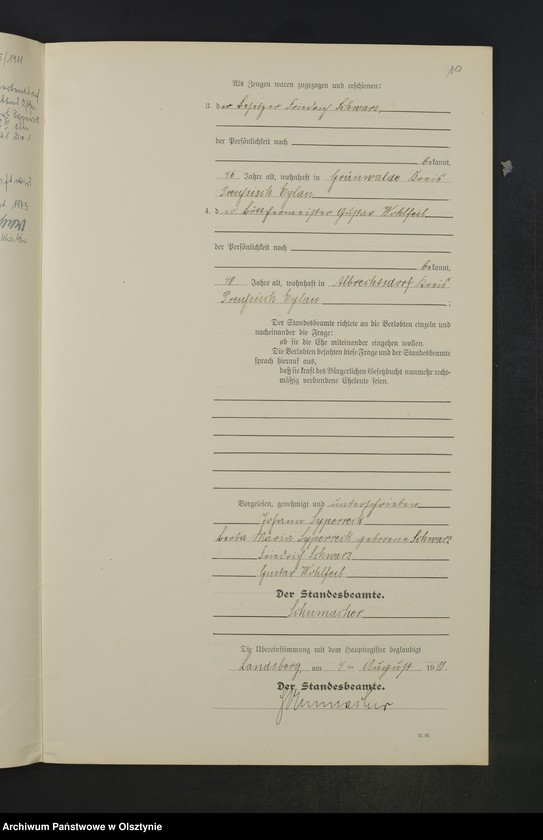 10
Als Zeugen waren zugezogen und erschienen:
3. der Besitzer Friedrich Schwarz,
der Persönlichkeit nach
bekannt,
46 Jahre alt, wohnhaft in Grünwalde Kreis
Preußisch Eylau
4. der Böttchermeister Gustav Wohlfeil
der Persönlichkeit nach
bekannt,
40 Jahre alt, wohnhaft in Albrechtsdorf Kreis
Preußisch Eylau ;
Der Standesbeamte richtete an die Verlobten einzeln und
nacheinander die Frage:
ob sie die Ehe miteinander eingehen wollen.
Die Verlobten bejahten diese Frage und der Standesbeamte
sprach hierauf aus,
daß sie kraft des Bürgerlichen Gesetzbuchs nunmehr recht-
mäßig verbundene Eheleute seien.
Vorgelesen, genehmigt und unterschrieben
Johann Sypereck
Berta Maria Sypereck geborene Schwarz
Friedrich Schwarz
Gustav Wohlfeil
Der Standesbeamte.
Schumacher
Die Übereinstimmung mit dem Hauptregister beglaubigt
Landsberg, am 4ten August 1911.
Der Standesbeamte.
Schumacher
Archiwum Państwowe w Olsztynie